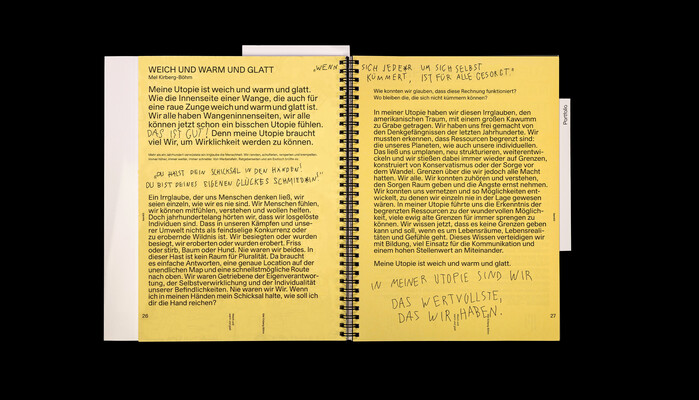 WEICH UND WARM UND GLATT
Mel Kirberg-Böhm
Meine Utopie ist weich und warm und glatt.
Wie die Innenseite einer Wange, die auch für
eine raue Zunge weich und warm und glatt ist.
Wir alle haben Wangeninnenseiten, wir alle
können jetzt schon ein bisschen Utopie fühlen.
DAS IST GUT! Denn meine Utopie braucht
viel Wir, um Wirklichkeit werden zu können.
„DU HÄLST DEIN SCHICKSAL IN DEN HÄNDEN!
DU BIST DEINES EIGENEN GLÜCKES SCHMIED:IN!"
Ein Irrglaube, der uns Menschen denken ließ, wir
seien einzeln, wie wir es nie sind. Wir Menschen fühlen,
wir können mitfühlen, verstehen und wollen helfen,
doch jahrhundertelang hörten wir, dass wir losgelöste
Individuen sind. Dass in unseren Kämpfen und unse-
rer Umwelt nichts als feindselige Konkurrenz oder
zu erobernde Wildnis ist. Wir besiegten oder wurden
besiegt, wir eroberten oder wurden erobert. Friss
oder stirb, Baum oder Hund. Nie waren wir beides. In
dieser Hast ist kein Raum für Pluralität. Da braucht
es einfache Antworten, eine genaue Location auf der
unendlichen Map und eine schnellstmögliche Route
nach oben. Wir waren Getriebene der Eigenverantwor-
tung, der Selbstverwirklichung und der Individualität
unserer Befindlichkeiten. Nie waren wir Wir. Wenn
ich in meinen Händen mein Schicksal halte, wie soll ich
dir die Hand reichen?
26
„WENN SICH JEDE*R UM SICH SELBST
KÜMMERT, IST FÜR ALLE GESORGT."
Wie konnten wir glauben, dass diese Rechnung funktioniert?
Wo bleiben die, die sich nicht kümmern können?
In meiner Utopie haben wir diesen Irrglauben, den
amerikanischen Traum, mit einem großen Kawumm
zu Grabe getragen. Wir haben uns frei gemacht von
den Denkgefängnissen der letzten Jahrhunderte. Wir
mussten erkennen, dass Ressourcen begrenzt sind:
die unseres Planeten, wie auch unsere individuellen.
Das ließ uns umplanen, neu strukturieren, weiterentwi-
ckeln und wir stießen dabei immer wieder auf Grenzen,
konstruiert von Konservatismus oder der Sorge vor
dem Wandel. Grenzen über die wir jedoch alle Macht
hatten. Wir alle. Wir konnten zuhören und verstehen,
den Sorgen Raum geben und die Ängste ernst nehmen.
Wir konnten Worte finden und so Möglichkeiten ent-
wickeln, zu denen wir einzeln nie in der Lage gewesen
wären. In meiner Utopie führte uns die Erkenntnis der
begrenzten Ressourcen zu der wundervollen Möglich-
keit, viele ewig alte Grenzen für immer sprengen zu
können. Wir wissen jetzt, dass es keine Grenzen geben
kann und soll, wenn es um Lebensräume, Lebensreali-
täten und Gefühle geht. Dieses Wissen verteidigen wir
mit Bildung, viel Einsatz für die Kommunikation und
einem hohen Stellenwert an Miteinander.
Meine Utopie ist weich und warm und glatt.
IN MEINER UTOPIE SIND WIR
DAS WERTVOLLSTE,
DAS WIR HABEN.
27
Portfolio